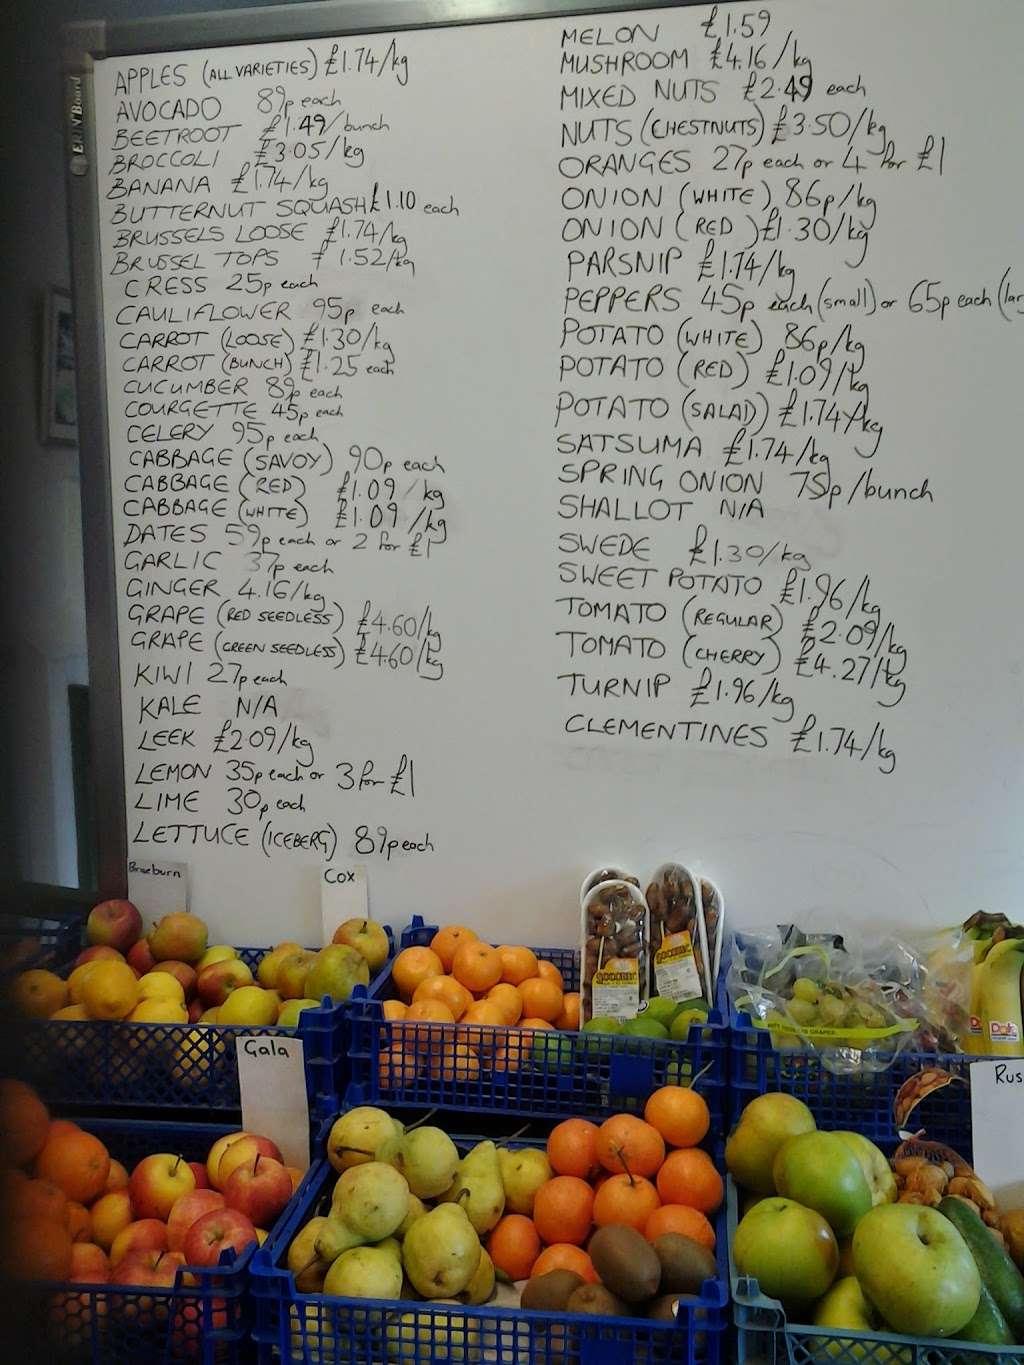 ERIN®Board
APPLES (ALL VARIETIES) £1.74/kg
AVOCADO 89p each
BEETROOT £1.49/bunch
BROCCOLI £3.05/kg
BANANA £1.74/kg
BUTTERNUT SQUASH £1.10 each
BRUSSELS LOOSE £1.74/kg
BRUSSEL TOPS £1.52/kg
CRESS 25p each
CAULIFLOWER 95p each
CARROT (LOOSE) £1.30/kg
CARROT (BUNCH) £1.25 each
CUCUMBER 89p each
COURGETTE 45p each
CELERY 95p each
CABBAGE (SAVOY) 90p each
CABBAGE (RED) £1.09/kg
CABBAGE (WHITE) £1.09/kg
DATES 59p each or 2 for £1
GARLIC 37p each
GINGER 4.16/kg
GRAPE (RED SEEDLESS) £4.60/kg
GRAPE (GREEN SEEDLESS) £4.60/kg
KIWI 27p each
KALE N/A
LEEK £2.09/kg
LEMON 35p each or 3 for £1
LIME 30p each
LETTUCE (ICEBERG) 89p each
MELON £1.59
MUSHROOM £4.16/kg
MIXED NUTS £2.49 each
NUTS (CHESTNUTS) £3.50/kg
ORANGES 27p each or 4 for £1
ONION (WHITE) 86p/kg
ONION (RED) £1.30/kg
PARSNIP £1.74/kg
PEPPERS 45p each (small) or 65p each (lar
POTATO (WHITE) 86p/kg
POTATO (RED) £1.09/kg
POTATO (SALAD) £1.74/kg
SATSUMA £1.74/kg
SPRING ONION 75p/bunch
SHALLOT N/A
SWEDE £1.30/kg
SWEET POTATO £1.96/kg
TOMATO (REGULAR) £2.09/kg
TOMATO (CHERRY) £4.27/kg
TURNIP £1.96/kg
CLEMENTINES £1.74/kg
Braeburn
Cox
Dole
Gala
Rus